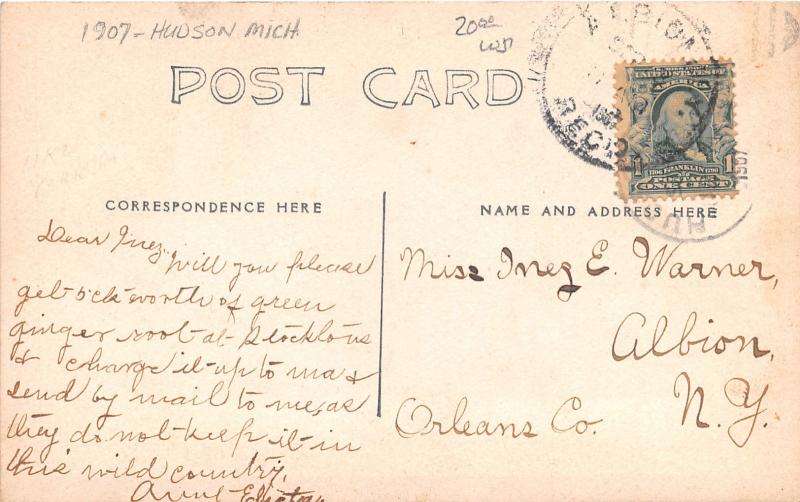 1907 - HUDSON MICH
20.00
POST CARD
REC'D
1907
UNITED STATES OF AMERICA
1 1706 FRANKLIN 1790 1
POSTAGE
ONE CENT
CORRESPONDENCE HERE
NAME AND ADDRESS HERE
Dear Inez.
Will you please
get 5ct worth of green
ginger root at Stocktons
& charge it up to ma &
send by mail to me, as
they do not keep it in
this wild country.
Aunt
Miss Inez E. Warner,
Albion,
Orleans Co. N.Y.